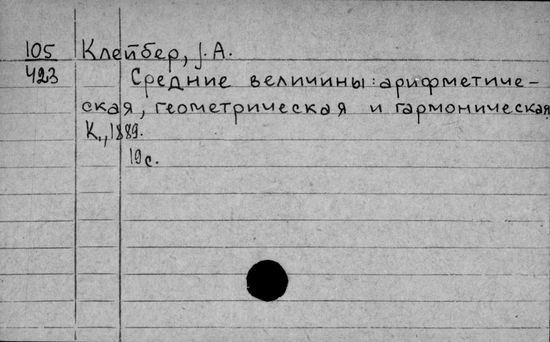 105 Клейбер, J. А.
423 Средние величины: арифметиче-
ская, геометрическая и гармоническая
К., 1889.
19 с.